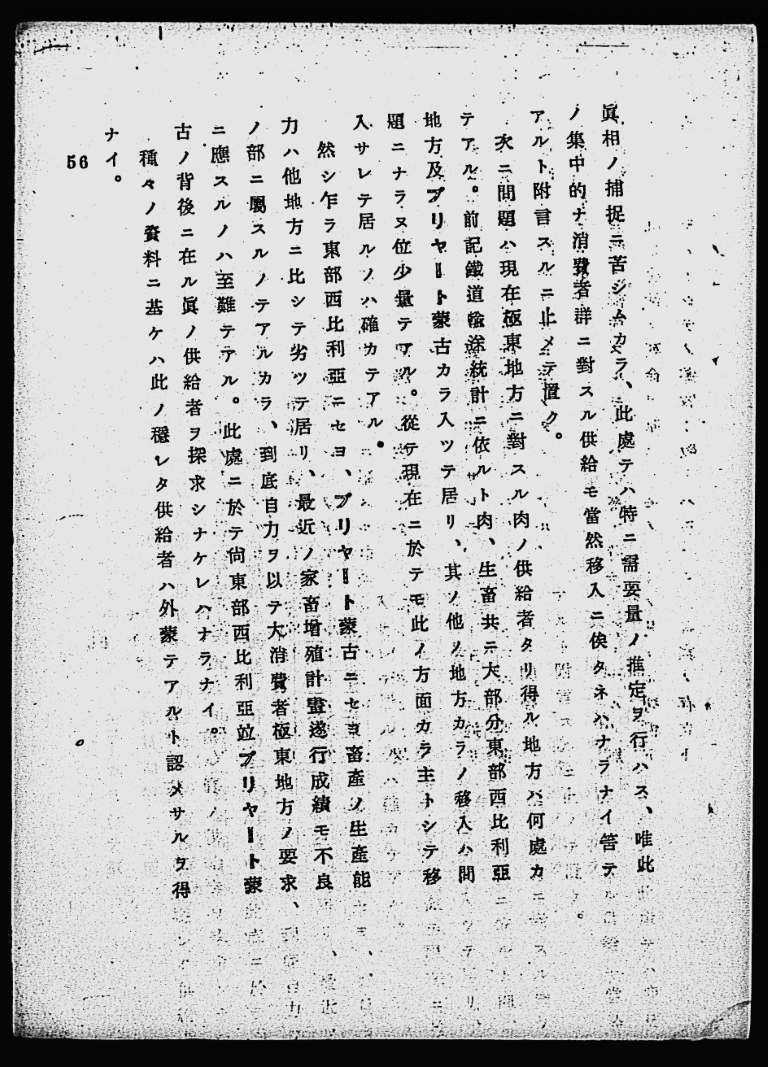 眞相ノ捕捉ニ苦シムカラ、此處テハ特ニ需要量ノ推定ヲ行ハス、唯此
ノ集中的ナ消費者群ニ對スル供給モ當然移入ニ俟タネハナラナイ筈テ
アルト附言スルニ止メテ置ク。
次ニ問題ハ現在極東地方ニ對スル肉ノ供給者タリ得ル地方ハ何處カ
テアル。前記鐵道輸送統計ニ依ルト肉、生畜共ニ大部分東部西比利亞
地方及ブリヤート蒙古カラ入ツテ居リ、其ノ他ノ地方カラノ移入ハ問
題ニナラヌ位少量テアル。從テ現在ニ於テモ此ノ方面カラ主トシテ移
入サレテ居ルノハ確カテアル。
然シ乍ラ東部西比利亞ニセヨ、ブリヤート蒙古ニセヨ畜產ノ生產能
力ハ他地方ニ比シテ劣ツテ居リ、最近ノ家畜增殖計畫遂行成績モ不良
ノ部ニ屬スルノテアルカラ、到底自力ヲ以テ大消費者極東地方ノ要求
ニ應スルノハ至難テアル。此處ニ於テ尙東部西比利亞竝ブリヤート蒙
古ノ背後ニ在ル眞ノ供給者ヲ探求シナケレハナラナイ。
種々ノ資料ニ基ケハ此ノ穩レタ供給者ハ外蒙テアルト認メサルヲ得
ナイ。
56